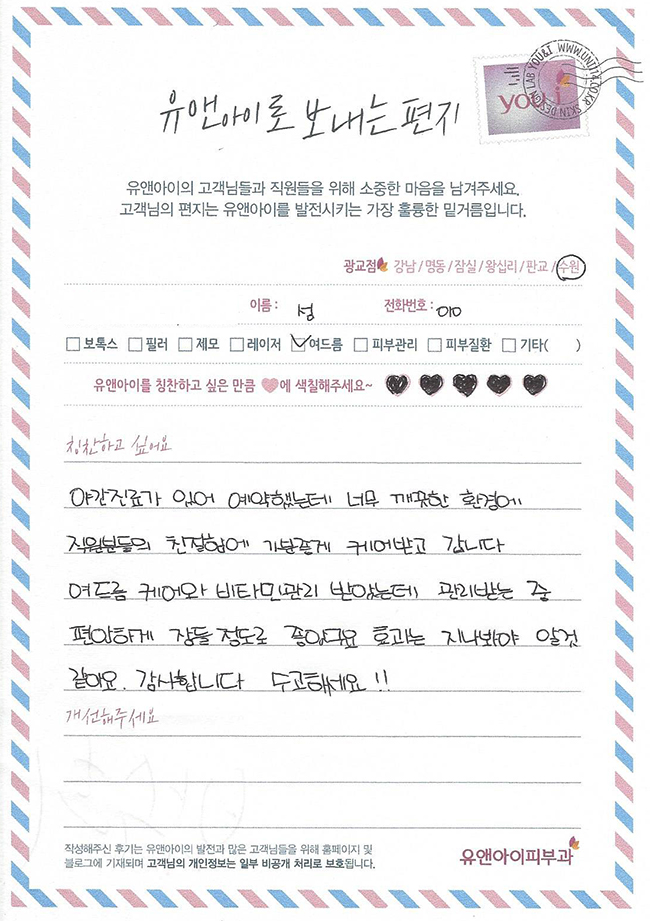 YOU&I WWW.UNI114.CO.KR SKIN DESIGN LAB
you&i
유앤아이로 보내는 편지
유앤아이의 고객님들과 직원들을 위해 소중한 마음을 남겨주세요.
고객님의 편지는 유앤아이를 발전시키는 가장 훌륭한 밑거름입니다.
광교점 강남 / 명동 / 잠실 / 왕십리 / 판교 / 수원
이름 : 성 전화번호 : 010
보톡스 필러 제모 레이저 여드름 피부관리 피부질환 기타( )
유앤아이를 칭찬하고 싶은 만큼 에 색칠해주세요~
칭찬하고 싶어요
야간진료가 있어 예약했는데 너무 깨끗한 환경에
직원분들의 친절함에 기분좋게 케어받고 갑니다
여드름 케어와 비타민관리 받았는데 관리받는 중
편안하게 잠들 정도로 좋았구요 효과는 지나봐야 알것
같아요. 감사합니다 수고하세요 !!
개선해주세요
작성해주신 후기는 유앤아이의 발전과 많은 고객님들을 위해 홈페이지 및
블로그에 기재되며 고객님의 개인정보는 일부 비공개 처리로 보호됩니다.
유앤아이피부과